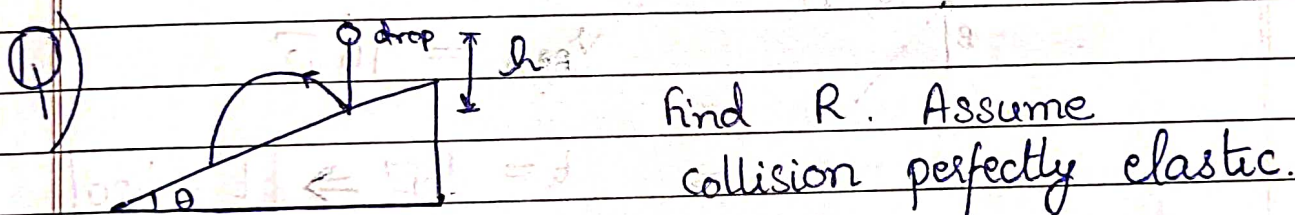 Q)
drop
h
θ
Find R. Assume
collision perfectly elastic.